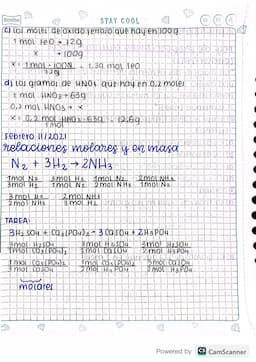 STAY COOL
c) los moles de oxido ferroso que hay en 100g
1 mol FeO → 72g
x → 100g
x = 1 mol · 100g = 1.39 mol FeO
72g
d) los gramos de HNO₃ que hay en 0,2 moles
1 mol HNO₃ → 63g
0,2 mol HNO₃ → x
x = 0,2 mol HNO₃ · 63g = 12,6g
1 mol
Febrero 11/2021
relaciones molares y en masa
N₂ + 3H₂ → 2NH₃
1mol N₂ 3mol H₂ 1mol N₂ 2mol NH₃
3mol H₂ 1mol N₂ 2mol NH₃ 1mol N₂
3mol H₂ 2mol NH₃
2mol NH₃ 3mol H₂
TAREA:
3H₂SO₄ + Ca₃(PO₄)₂ → 3CaSO₄ + 2H₃PO₄
3mol H₂SO₄ 3mol H₂SO₄ 3mol H₂SO₄
1mol Ca₃(PO₄)₂ 3mol CaSO₄ 2mol H₃PO₄
1mol Ca₃(PO₄)₂ 1mol Ca₃(PO₄)₂ 3mol CaSO₄
3mol CaSO₄ 2mol H₃PO₄ 2mol H₃PO₄
molares
Powered by CS CamScanner